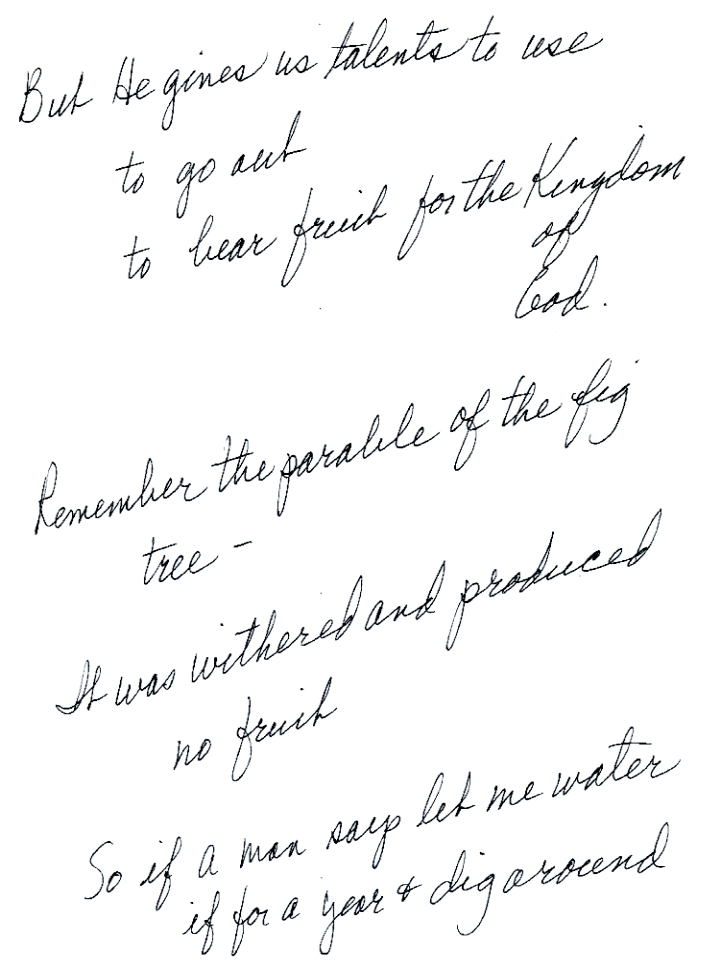 But He gives us talents to use
to go out
to bear fruit for the Kingdom
of
God.
Remember the parable of the fig
tree -
It was withered and produced
no fruit
So if a man says let me water
it for a year & dig around